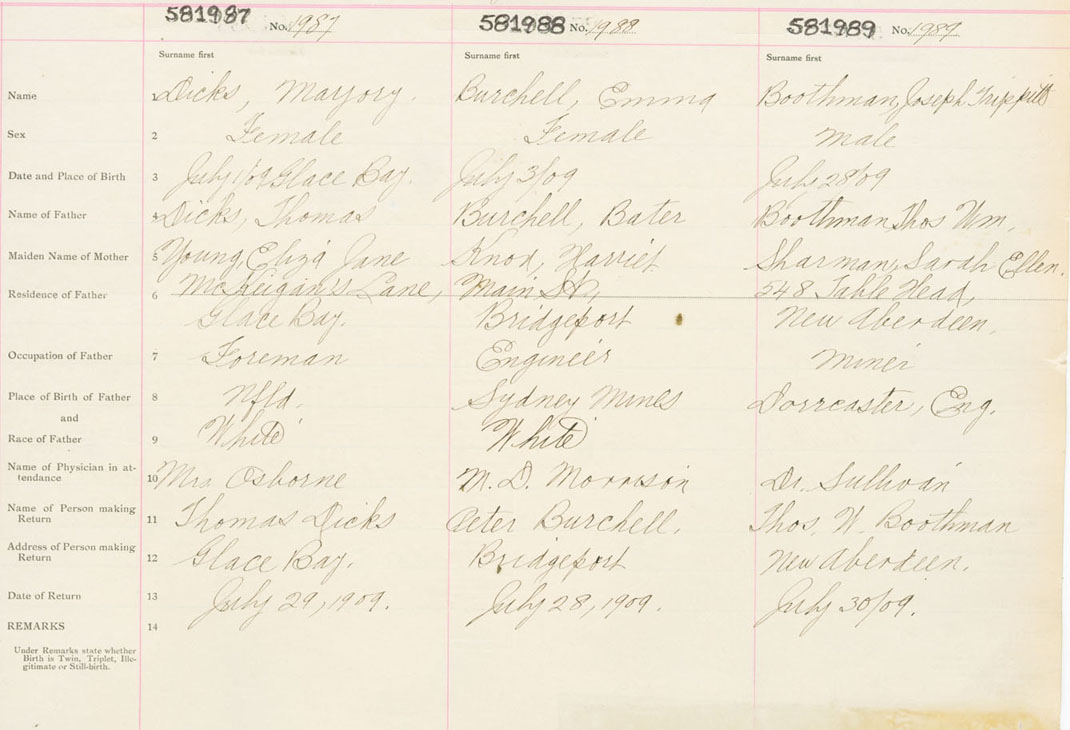 581987 No. 1987 581988 No. 1988 581989 No. 1989
Surname first Surname first Surname first
Name 1 Dicks, Marjory. Burchell, Emma Boothman, Joseph
Sex 2 Female Female Male
Date and Place of Birth 3 July 1/09 Glace Bay. July 3/09 July 28/09
Name of Father 4 Dicks, Thomas Burchell, Bater Boothman, Thos Wm.
Maiden Name of Mother 5 Young, Eliza Jane Knox, Harriet Sharman, Sarah Ellen.
Residence of Father 6 McKeigan's Lane, Main St., 548 Table Head,
Glace Bay. Bridgeport New Aberdeen.
Occupation of Father 7 Foreman Engineer Miner
Place of Birth of Father 8 Nfld. Sydney Mines Dorrcaster, Eng.
and
Race of Father 9 White White
Name of Physician in at-
tendance 10 Mrs Osborne M. D. Morrison Dr. Sullivan
Name of Person making
Return 11 Thomas Dicks Peter Burchell. Thos. W. Boothman
Address of Person making
Return 12 Glace Bay. Bridgeport New Aberdeen.
Date of Return 13 July 29, 1909. July 28, 1909. July 30/09.
REMARKS 14
Under Remarks state whether
Birth is Twin, Triplet, Ille-
gitimate or Still-birth.